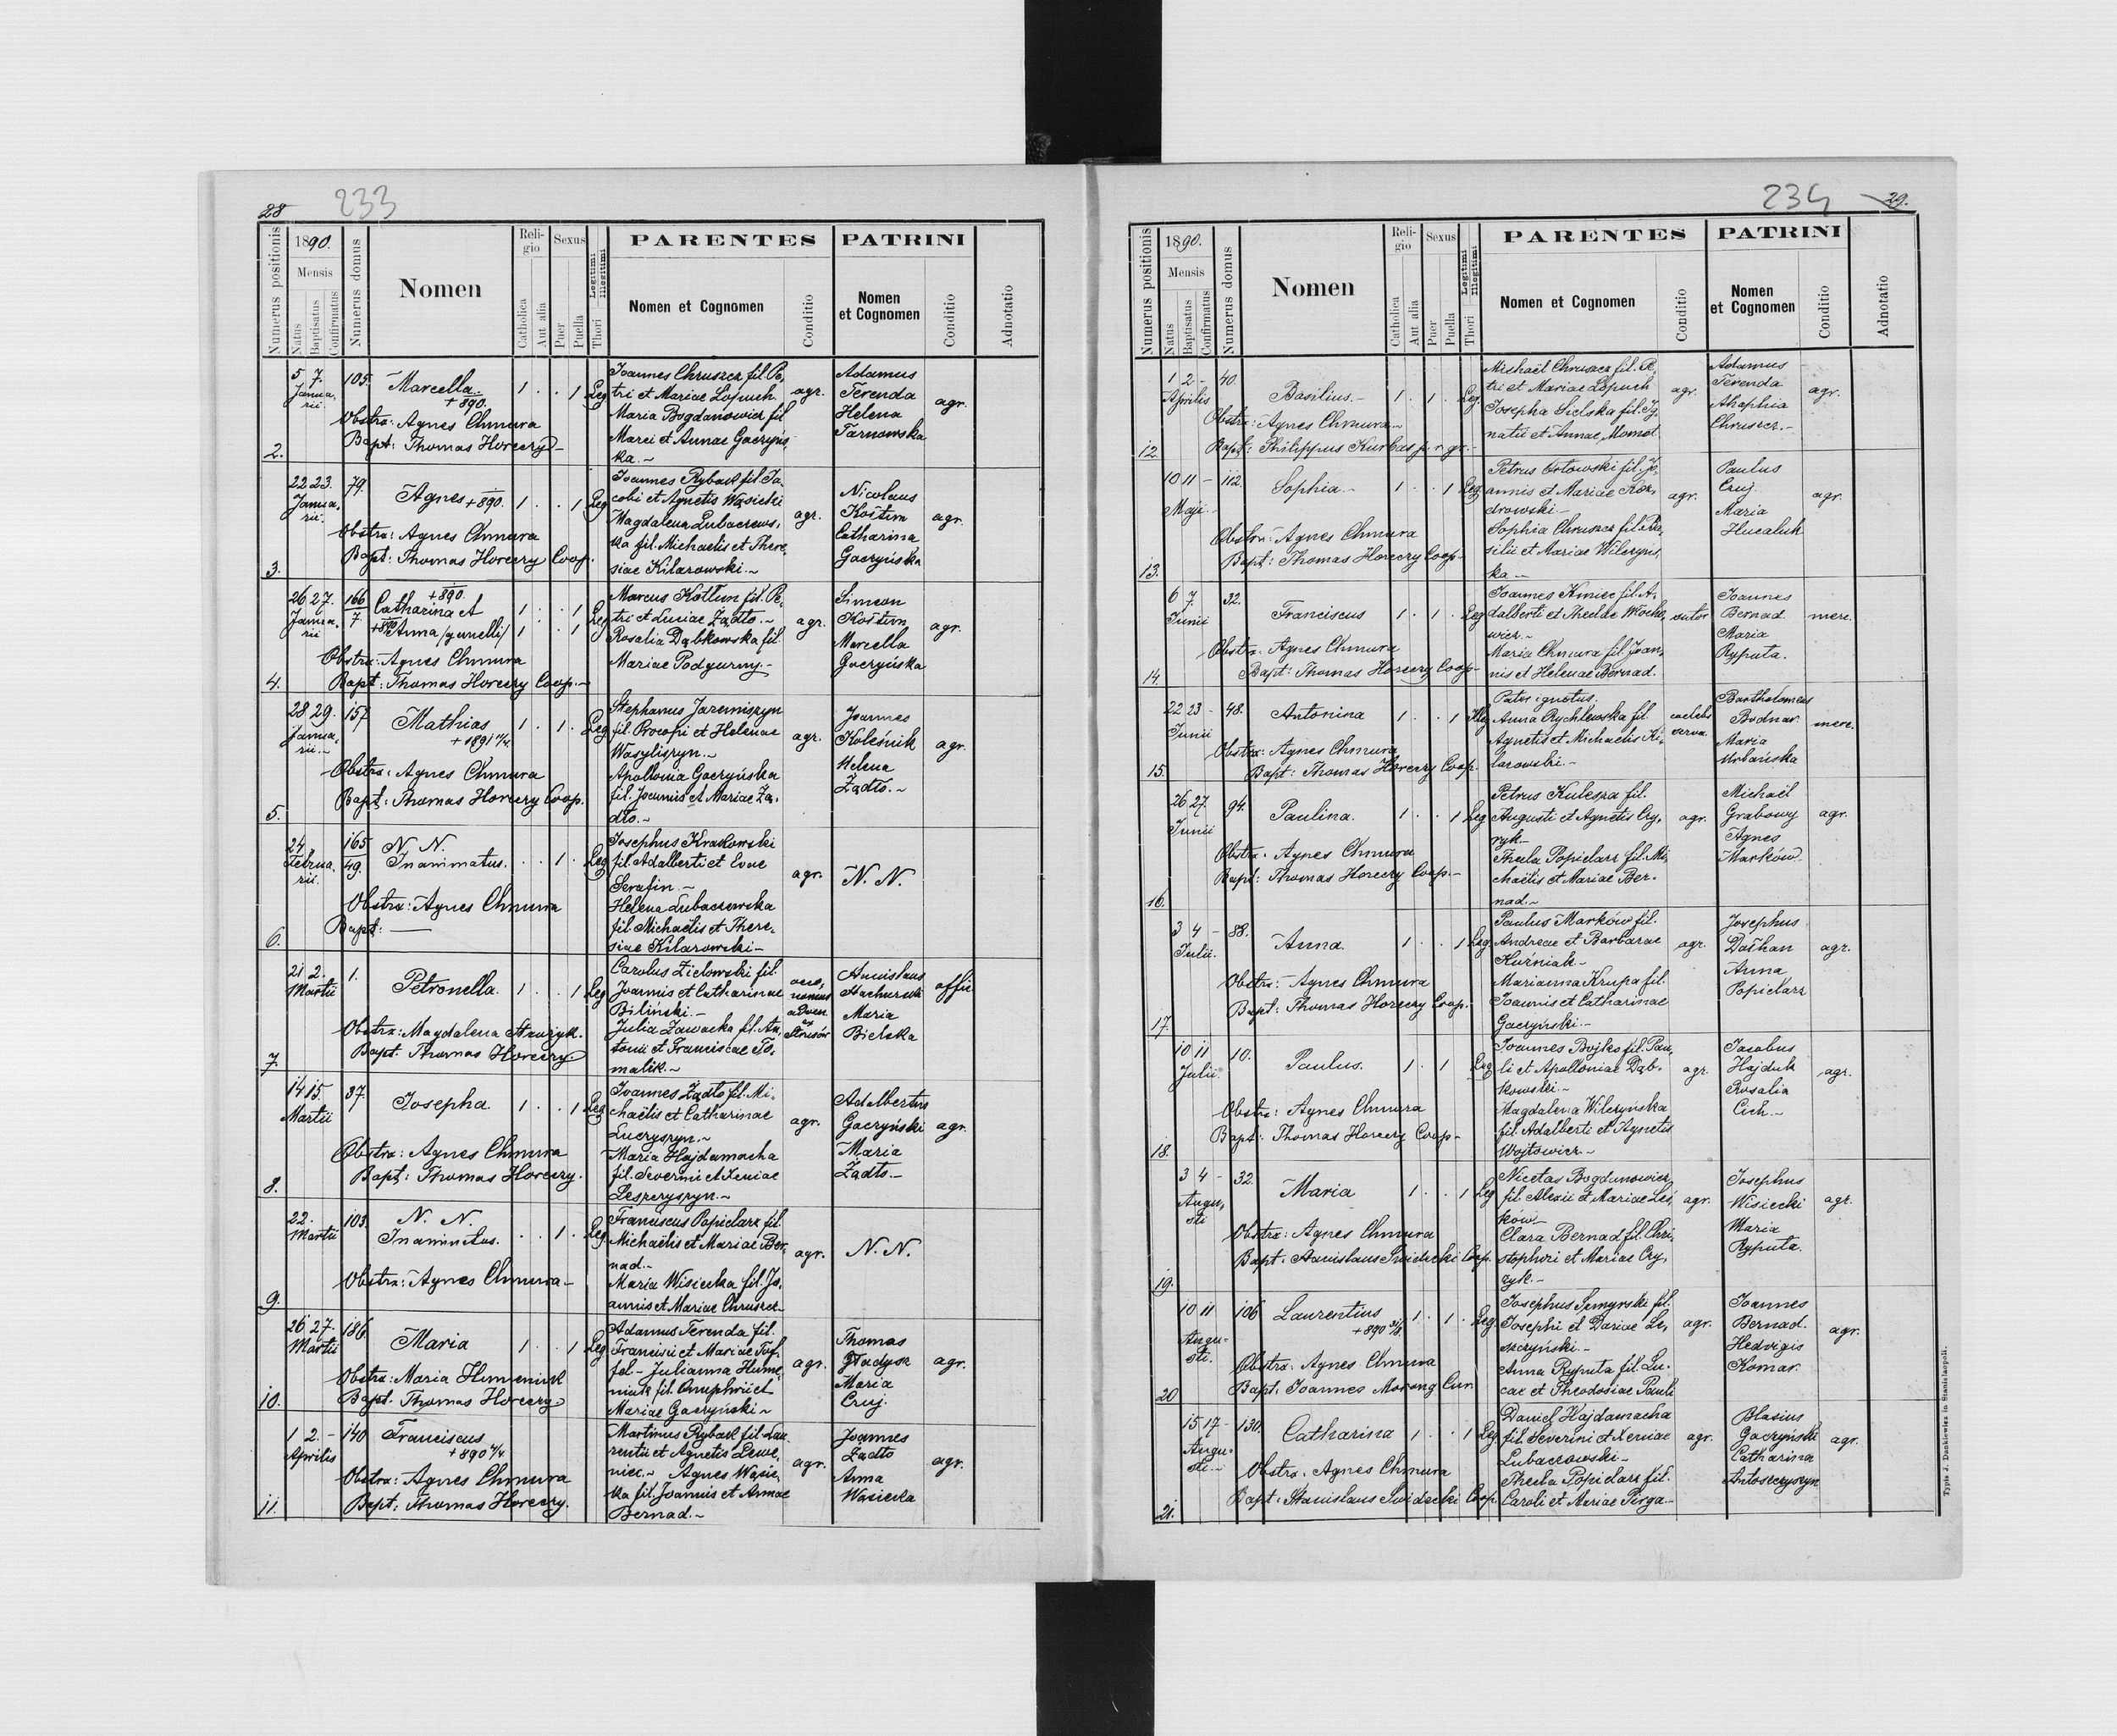 28
233
Numerus positionis
1890.
Mensis
Natus
Baptisatus
Confirmatus
Numerus domus
Nomen
Religio
Catholica
Aut alia
Sexus
Puer
Puella
Legitimi
Illegitimi
Thori
PARENTES
Nomen et Cognomen
Conditio
PATRINI
Nomen
et Cognomen
Conditio
Adnotatio
2.
5 7.
Janua,
rii.
105.
Marcella
+890.
1 . . 1 Leg
Obstra: Agnes Chmura
Bapt: Thomas Horeczy
Joannes Chruszcz fil. Pe,
tri et Mariae Łopuch
Maria Bogdanowicz fil
Marci et Annae Gaczyńs,
ka.~
agr.
Adamus
Terenda
Helena
Tarnowska
agr.
3.
22 23.
Janua,
rii.
79.
Agnes +890.
1 . . 1 Leg
Obstra: Agnes Chmura
Bapt: Thomas Horeczy Coop.
Joannes Rybak fil. Ja,
cobi et Agnetis Wąsicki
Magdalena Lubaczews,
ka fil. Michaelis et There,
siae Kilarowski.~
agr.
Nicolaus
Kostim
Catharina
Gaczyńska
agr.
4.
26 27.
Janua,
rii
166
7
+890.
Catharina et
+890 Anna /gemelli/
1 . . 1
1 . . 1
Leg
Obstra: Agnes Chmura
Bapt: Thomas Horeczy Coop.~
Marcus Kotlun fil. Pe,
tri et Luciae Żądło.~
Rosalia Dąbkowska fil.
Mariae Podgurny.-
agr.
Simeon
Kostim
Marcella
Gaczyńska
agr.
5.
28 29.
Janua,
rii.~
157
Mathias
+ 1891 11/4
1 . 1 . Leg
Obstra: Agnes Chmura
Bapt: Thomas Horeczy Coop.
Stephanus Jaremiszyn
fil. Procopi et Helenae
Wasyliszyn.~
Apollonia Gaczyńska
fil. Joannis et Mariae Żą,
dło.~
agr.
Joannes
Koleśnik
Helena
Żądło.~
agr.
6.
24
Februa,
rii.
165
49.
N. N.
Inanimatus.
. . 1 . Leg
Obstra: Agnes Chmura
Bapt: —
Josephus Krakowski
fil. Adalberti et Evae
Serafin.~
Helena Lubaczewska
fil. Michaëlis et There,
siae Kilarowski-
agr.
N. N.
7.
21 2.
Martii
1.
Petronella.
1 . . 1 Leg
Obstra: Magdalena
Bapt. Thomas Horeczy
Carolus Zielowski fil.
Joannis et Catharinae
Biliński.-
Julia Zawacka fil. An,
tonii et Franciscae To,
malik.~
oeco,
nomus
Strusów
Maria
Bielska
offic.
8.
14 15.
Martii
37.
Josepha
1 . . 1 Leg
Obstra: Agnes Chmura
Bapt: Thomas Horeczy.
Joannes Żądło fil. Mi,
chaëlis et Catharinae
Maria Hajdamacha
fil. Severini et Xeniae
Leszczyszyn.~
agr.
Adalbertus
Gaczyński
Maria
Żądło.-
agr.
9.
22.
Martii
103.
N. N.
Inanimatus.
. . 1 . Leg.
Obstra: Agnes Chmura-
Franciscus Popielarz fil.
Michaëlis et Mariae Ber,
nad.-
Maria Wisiecka fil. Jo,
annis et Mariae Chruszcz-
agr.
N. N.
10.
26 27.
Martii
186.
Maria
1 . . 1 Leg
Obstra: Maria Humeniuk
Bapt. Thomas Horeczy.
Adamus Terenda fil.
Francisci et Mariae
Julianna Hume,
niuk fil. Onuphrii et
Mariae Gaczyński~
agr.
Thomas
Gładysz
Maria
Czuj.
agr.
11.
1 2.-
Aprilis
140
Franciscus
+890 4/4
Obstra: Agnes Chmura
Bapt: Thomas Horeczy.
Martinus Rybak fil. Lau,
rentii et Agnetis Lewe,
niec.~ Agnes Wąsic,
ka fil. Joannis et Annae
Bernad.~
agr.
Joannes
Żądło
Anna
Wasiecka
agr.
234
29.
Numerus positionis
1890.
Mensis
Natus
Baptisatus
Confirmatus
Numerus domus
Nomen
Religio
Catholica
Aut alia
Sexus
Puer
Puella
Legitimi
Illegitimi
Thori
PARENTES
Nomen et Cognomen
Conditio
PATRINI
Nomen
et Cognomen
Conditio
Adnotatio
12
1 2-
Aprilis
40.
Basilius.-
1 . 1 . Leg.
Obstra: Agnes Chmura~
Bapt: Philippus Kurbas p. r. gr.-
Michaël Chruszcz fil. Pe,
tri et Mariae Łopuch
Josepha Sielska fil. Ig,
natii et Annae Momot
agr.
Adamus
Terenda
Ahaphia
Chruszcz.-
agr.
13.
10 11 -
Maji.-
112.
Sophia.-
1 . . 1 Leg
Obstra: Agnes Chmura
Bapt: Thomas Horeczy Coop-
Petrus Orłowski fil. Jo,
annis et Mariae
drowski-
Sophia Chruszcz fil. Ba,
silii et Mariae Wilczyńs,
ka.-
agr.
Paulus
Czuj.
Maria
Hucaluk
agr.
14.
6 7.
Junii
32.
Franciscus
1 . 1 . Leg
Obstra: Agnes Chmura
Bapt: Thomas Horeczy Coop-
Joannes Kmiec fil. A,
dalberti et Theclae
wicz.~
Maria Chmura fil. Joan,
nis et Helenae Bernad.
sutor
Joannes
Bernad
Maria
Ryputa.
merc.
15.
22 23 -
Junii
48.
Antonina
1 . . 1
Obstra: Agnes Chmura
Bapt: Thomas Horeczy Coop.
Pater ignotus.
Anna Rychlewska fil.
Agnetis et Michaelis Ki,
larowski.-
caelebs
serva
Bartholomeus
Bodnar
Maria
Urbańska
merc.
16.
26 27.
Junii
94.
Paulina.
1 . . 1 Leg
Obstra. Agnes Chmura
Bapt: Thomas Horeczy Coop.-
Petrus Kulesza fil.
Augusti et Agnetis Cry,
ryk-
Thecla Popielarz fil. Mi,
chaëlis et Mariae Ber,
nad.~
agr.
Michaël
Grabowy
Agnes
Marków-
agr.
17.
3 4 -
Julii.
88.
Anna.
1 . . 1 Leg.
Obstra: Agnes Chmura
Bapt: Thomas Horeczy Coop.
Paulus Marków fil.
Andreae et Barbarae
Kuźniak-
Marianna Krupa fil.
Joannis et Catharinae
Gaczyński.-
agr.
Josephus
Dachan
Anna
Popielarz
agr.
18.
10 11
Julii.
10.
Paulus.
1 . 1 Leg
Obstra: Agnes Chmura
Bapt: Thomas Horeczy Coop-
Joannes Bojko fil. Pau,
li et Apolloniae Dąb,
kowski.~
Magdalena Wilczyńska
fil. Adalberti et Agnetis
Wojtowicz.~
agr.
Jacobus
Hajduk
Rosalia
Cich.~
agr.
19.
3 4 -
Augu,
sti
32.
Maria
1 . . 1 Leg
Obstra: Agnes Chmura
Bapt. Stanislaus Świdecki Coop.
Nicetas Bogdanowicz
fil. Alexii et Mariae Leś,
ków-
Clara Bernad fil. Chri,
stophori et Mariae Cry,
zyk.-
agr.
Josephus
Wisiecki
Maria
Ryputa.
agr.
20
10 11
Augu-
sti.
106
Laurentius
+890 31/8
1 . 1 . Leg
Obstra: Agnes Chmura
Bapt. Joannes Morong Cur.
Josephus fil.
Josephi et Dariae Le,
szczyński.-
Anna Ryputa fil. Lu,
cae et Theodosiae Pauli
agr.
Joannes
Bernad.
Hedvigis
Komar.
agr.
21.
15 17 -
Augu-
sti.-
130.
Catharina
1 . . 1 Leg
Obstra. Agnes Chmura
Bapt: Stanislaus Świdecki Coop.
Daniel Hajdamacha
fil. Severini et Xeniae
Lubaczowski-
Thecla Popielarz fil.
Caroli et Mariae Pirga-
agr.
Blasius
Gaczyński
Catharina
Antoszczyszyn
agr.
Typis J. Dankiewicz in Stanislaopoli.